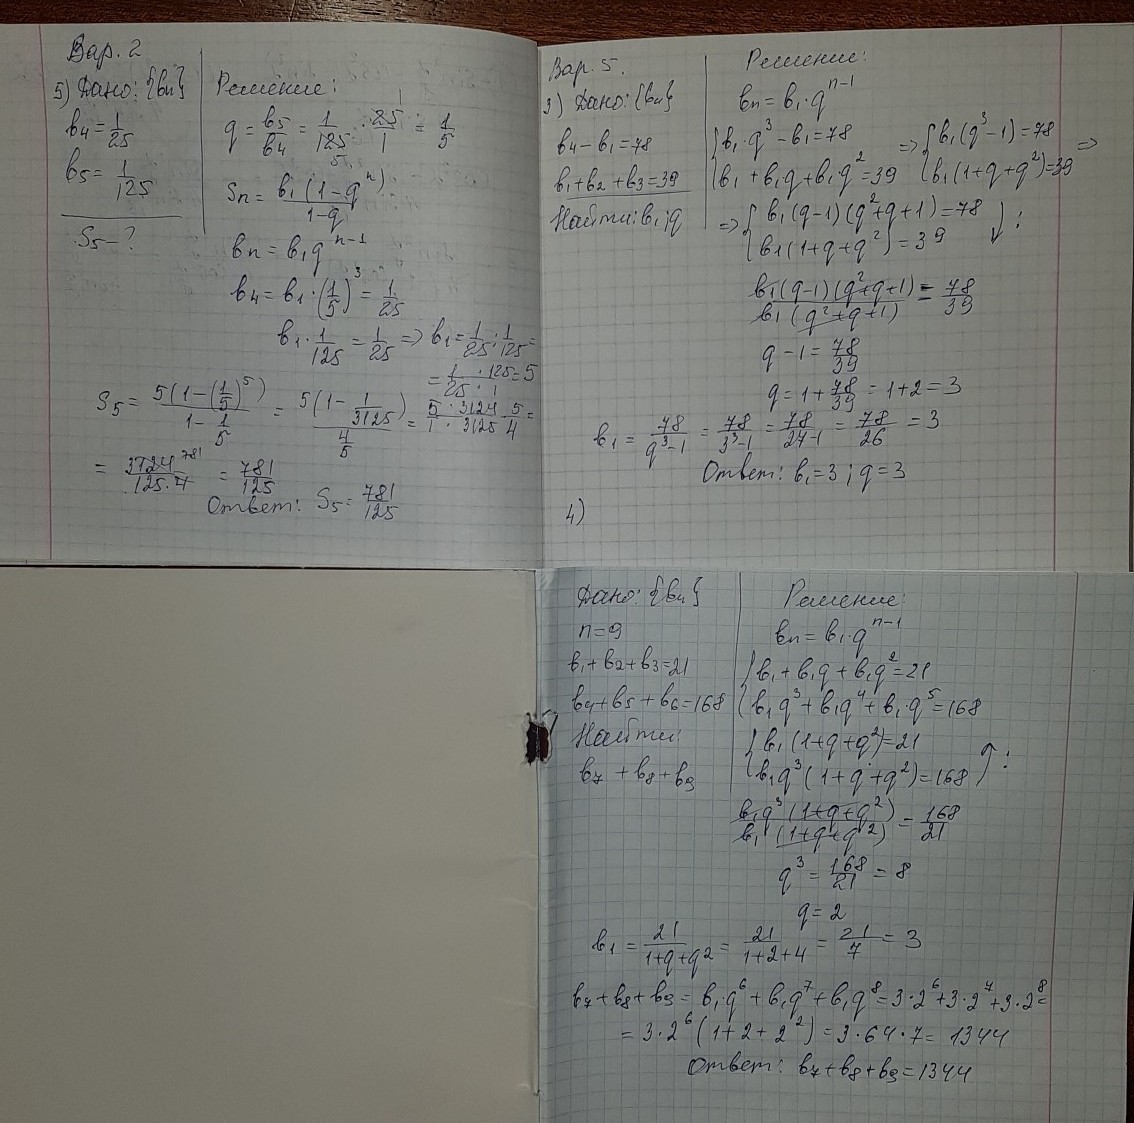 Вар. 2
5) Дано: {bn}
b4 = 1/25
b5 = 1/125
S5 - ?
Решение:
q = b5/b4 = 1/125 · 25/1 = 1/5
Sn = b1(1-q^n)/1-q
bn = b1q^n-1
b4 = b1·(1/5)^3 = 1/25
b1·1/125 = 1/25 => b1 = 1/25 : 1/125 =
= 1/25 · 125/1 = 5
S5 = 5(1-(1/5)^5)/1-1/5 = 5(1-1/3125)/4/5 = 5/1 · 3124/3125 · 5/4 =
= 3124 781/125·4 = 781/125
Ответ: S5 = 781/125
Вар. 5.
3) Дано: {bn}
b4 - b1 = 78
b1 + b2 + b3 = 39
Найти: b1; q
Решение:
bn = b1·q^n-1
{b1·q^3 - b1 = 78 => {b1(q^3-1) = 78 =>
{b1 + b1q + b1q^2 = 39 {b1(1+q+q^2) = 39
=> {b1(q-1)(q^2+q+1) = 78 ↓ :
{b1(1+q+q^2) = 39
b1(q-1)(q^2+q+1)/b1(q^2+q+1) = 78/39
q - 1 = 78/39
q = 1 + 78/39 = 1+2 = 3
b1 = 78/q^3-1 = 78/3^3-1 = 78/27-1 = 78/26 = 3
Ответ: b1=3; q=3
4)
Дано: {bn}
n=9
b1+b2+b3=21
b4+b5+b6=168
Найти:
b7+b8+b9
Решение:
bn = b1·q^n-1
{b1+b1q+b1q^2=21
{b1q^3+b1q^4+b1·q^5=168
{b1(1+q+q^2)=21
{b1q^3(1+q+q^2)=168 ↑ :
b1q^3(1+q+q^2)/b1(1+q+q^2) = 168/21
q^3 = 168/21 = 8
q = 2
b1 = 21/1+q+q^2 = 21/1+2+4 = 21/7 = 3
b7+b8+b9 = b1·q^6+b1q^7+b1q^8 = 3·2^6+3·2^7+3·2^8 =
= 3·2^6(1+2+2^2) = 3·64·7 = 1344
Ответ: b7+b8+b9=1344